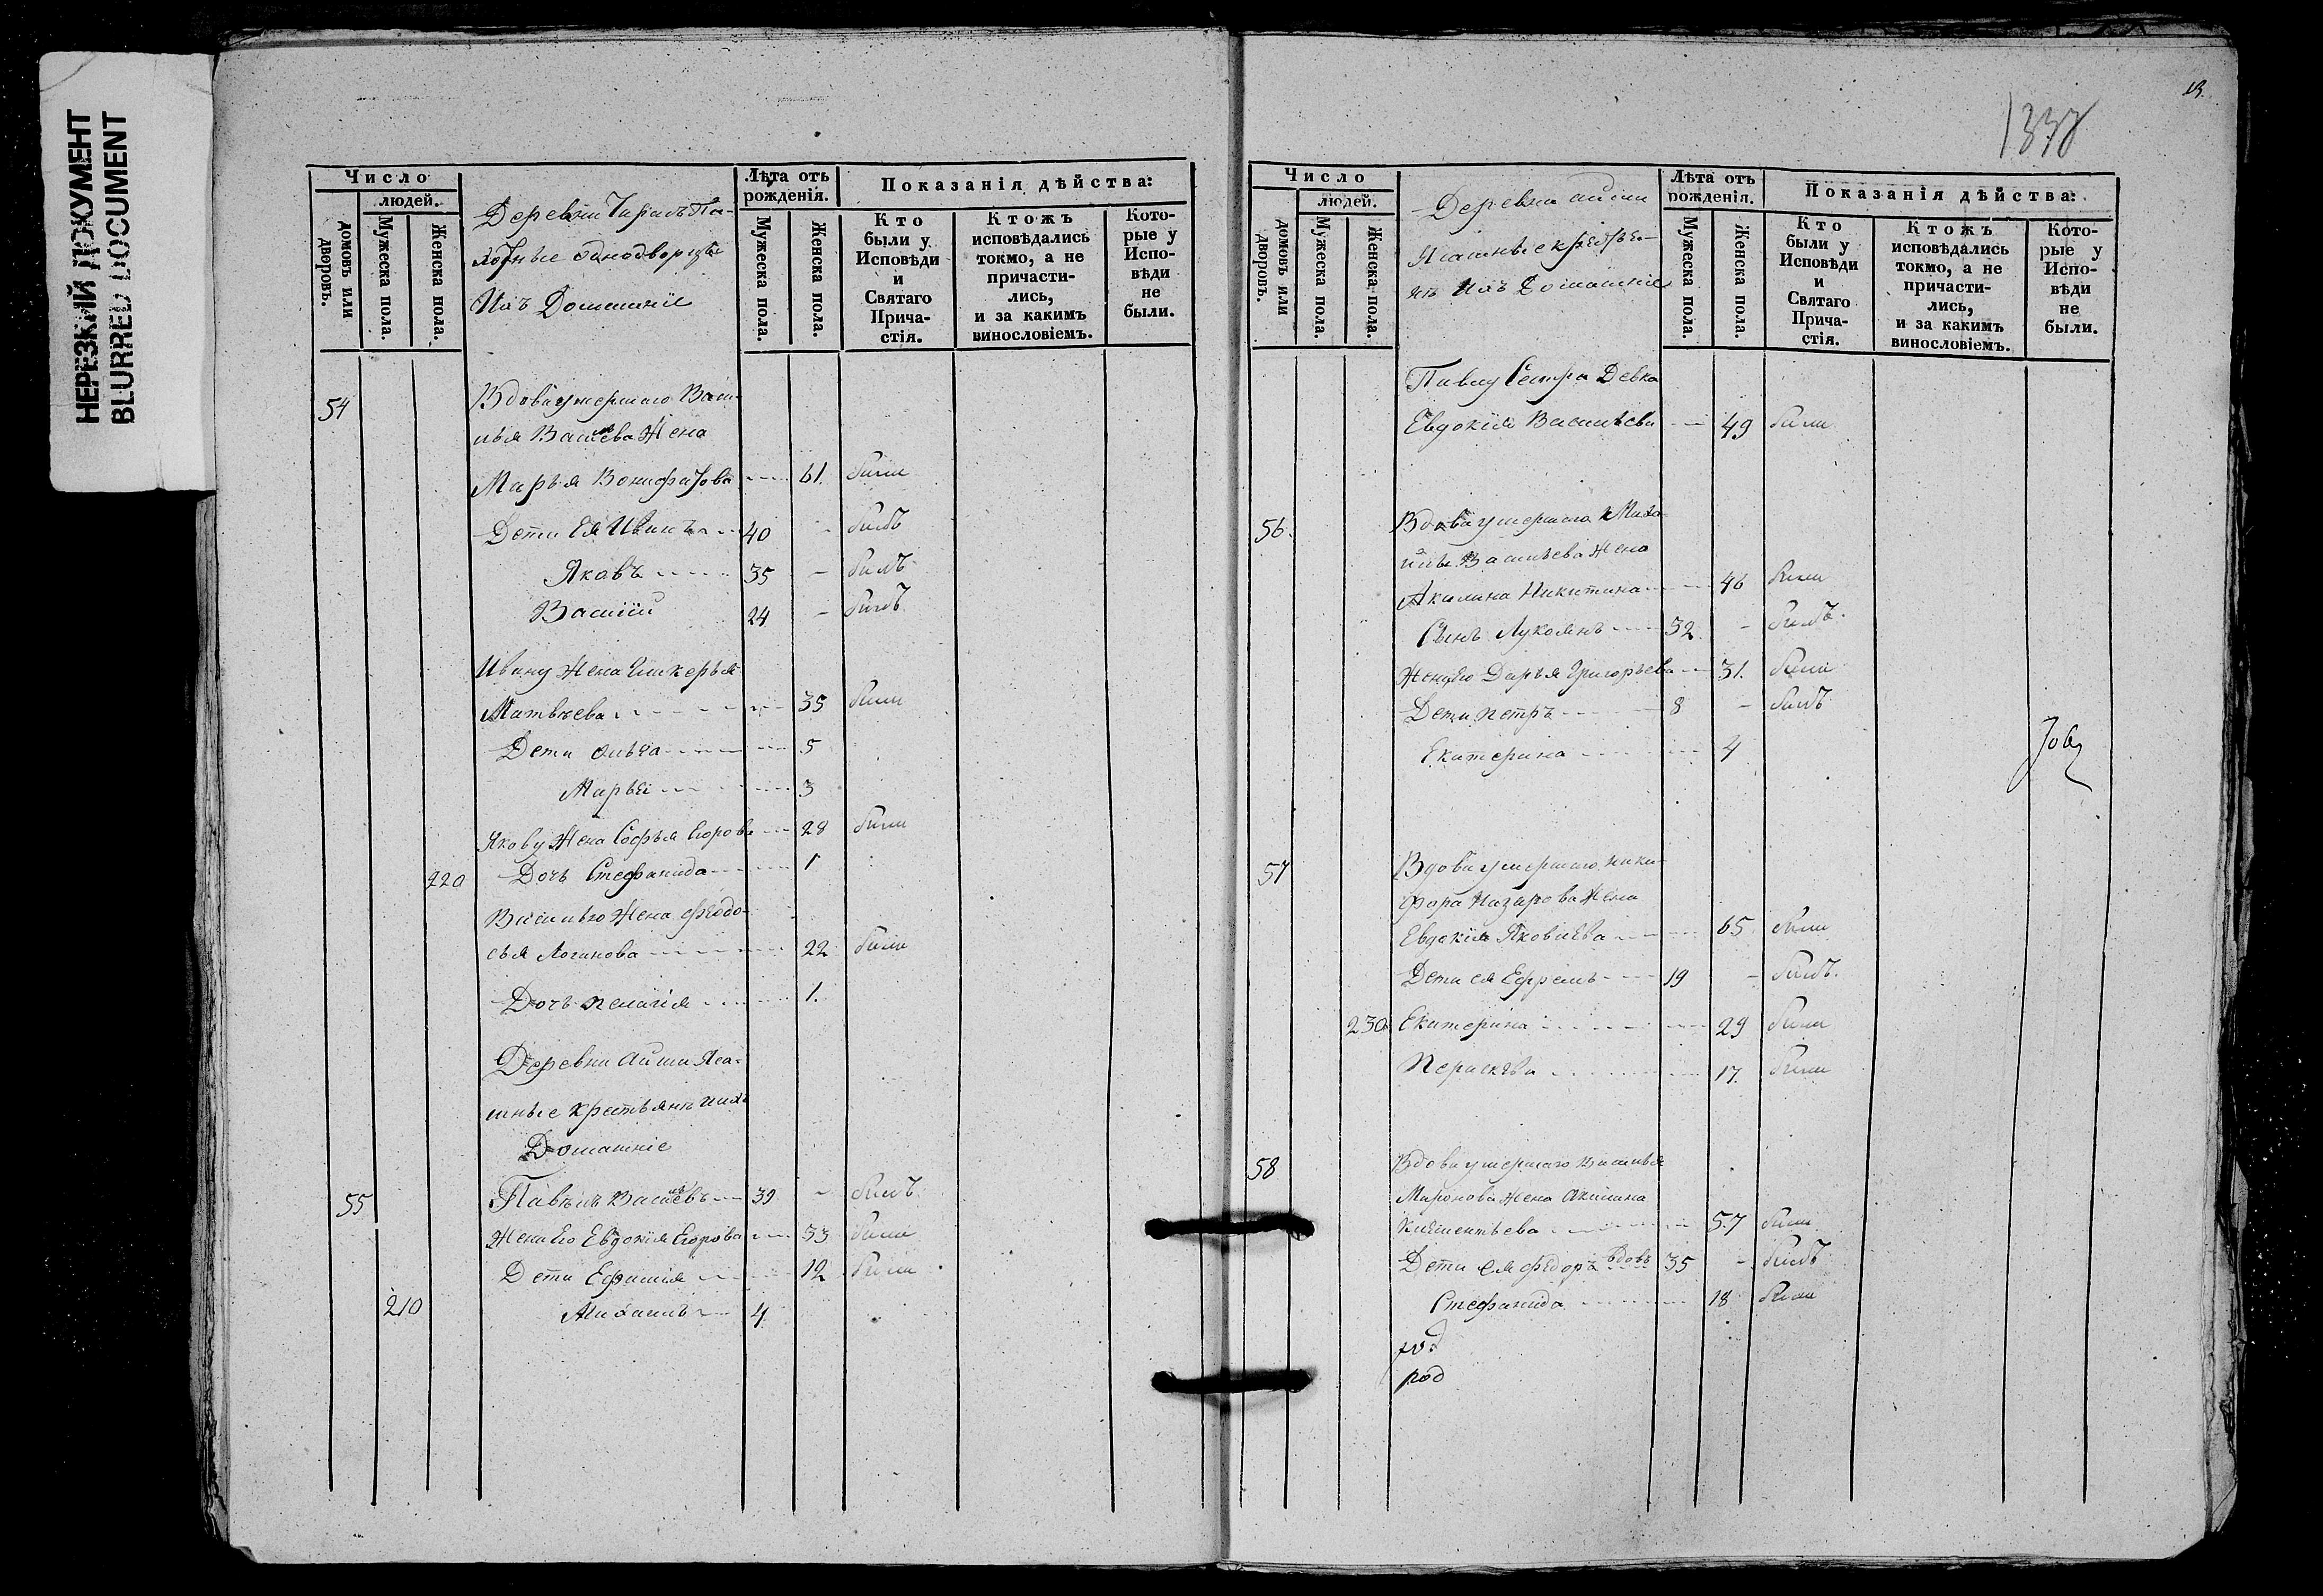 НЕРЕЗКИЙ ДОКУМЕНТ
BLURRED DOCUMENT
Число
людей.
домовъ или дворовъ.
Мужеска пола.
Женска пола.
Деревни Па-
хотные однодворцы
Ихъ Домашніе
Лѣта отъ рожденія.
Мужеска пола.
Женска пола.
Показанія дѣйства:
Кто были у Исповѣди и Святаго Прича-стія.
Ктожъ исповѣдались токмо, а не причасти-лись, и за какимъ винословіемъ.
Кото-рые у Испо-вѣди не были.
54 Вдова умершаго Васи-
лья Васильева Жена
Марья Вонифатова 61. была
Дети Ея Иванъ 40 - былъ
Яковъ 35 - былъ
Василій 24 - былъ
Ивану Жена Гликерья
Матвѣева 35 была
Дети 5
Марья 3
Якову Жена Софья Егорова 28 была
220 Дочь Стефанида 1
Василью Жена Феодо-
сья Логинова 22 была
Дочь пелагія 1.
Деревни Айши Яса-
шные крестьянъ ихъ
Домашніе
55 Павелъ Васильевъ 39 - былъ
Жена Его Евдокія Егорова 33 была
Дети Ефимія 12 была
210 Михаилъ 4
13.
1338
Число
людей.
домовъ или дворовъ.
Мужеска пола.
Женска пола.
Деревни айши
Ясашные крестья-
нъ Ихъ Домашніе
Лѣта отъ рожденія.
Мужеска пола.
Женска пола.
Показанія дѣйства:
Кто были у Исповѣди и Святаго Прича-стія.
Ктожъ исповѣдались токмо, а не причасти-лись, и за какимъ винословіемъ.
Кото-рые у Испо-вѣди не были.
Павлу Сестра Девка
Евдокія Васильева 49 была
56. Вдова умершаго Миха-
йлы Васильева Жена
Акилина Никитина 46 была
Сынъ Лукоянъ 32 - былъ
Жена Его Дарья Григорьева 31. была
Дети петръ 8 - былъ
Екатерина 4
57 Вдова умершаго ники-
фора Назарова Жена
Евдокія Яковлева 65 была
Дети ея Ефремъ 19 - былъ.
230 Екатерина 29 была
Перасковья 17. была
58 Вдова умершаго василья
Миронова жена Акилина
Климентьева 57 была
Дети ея Федоръ вдовъ 35 - былъ
Стефанида 18 была
род
род